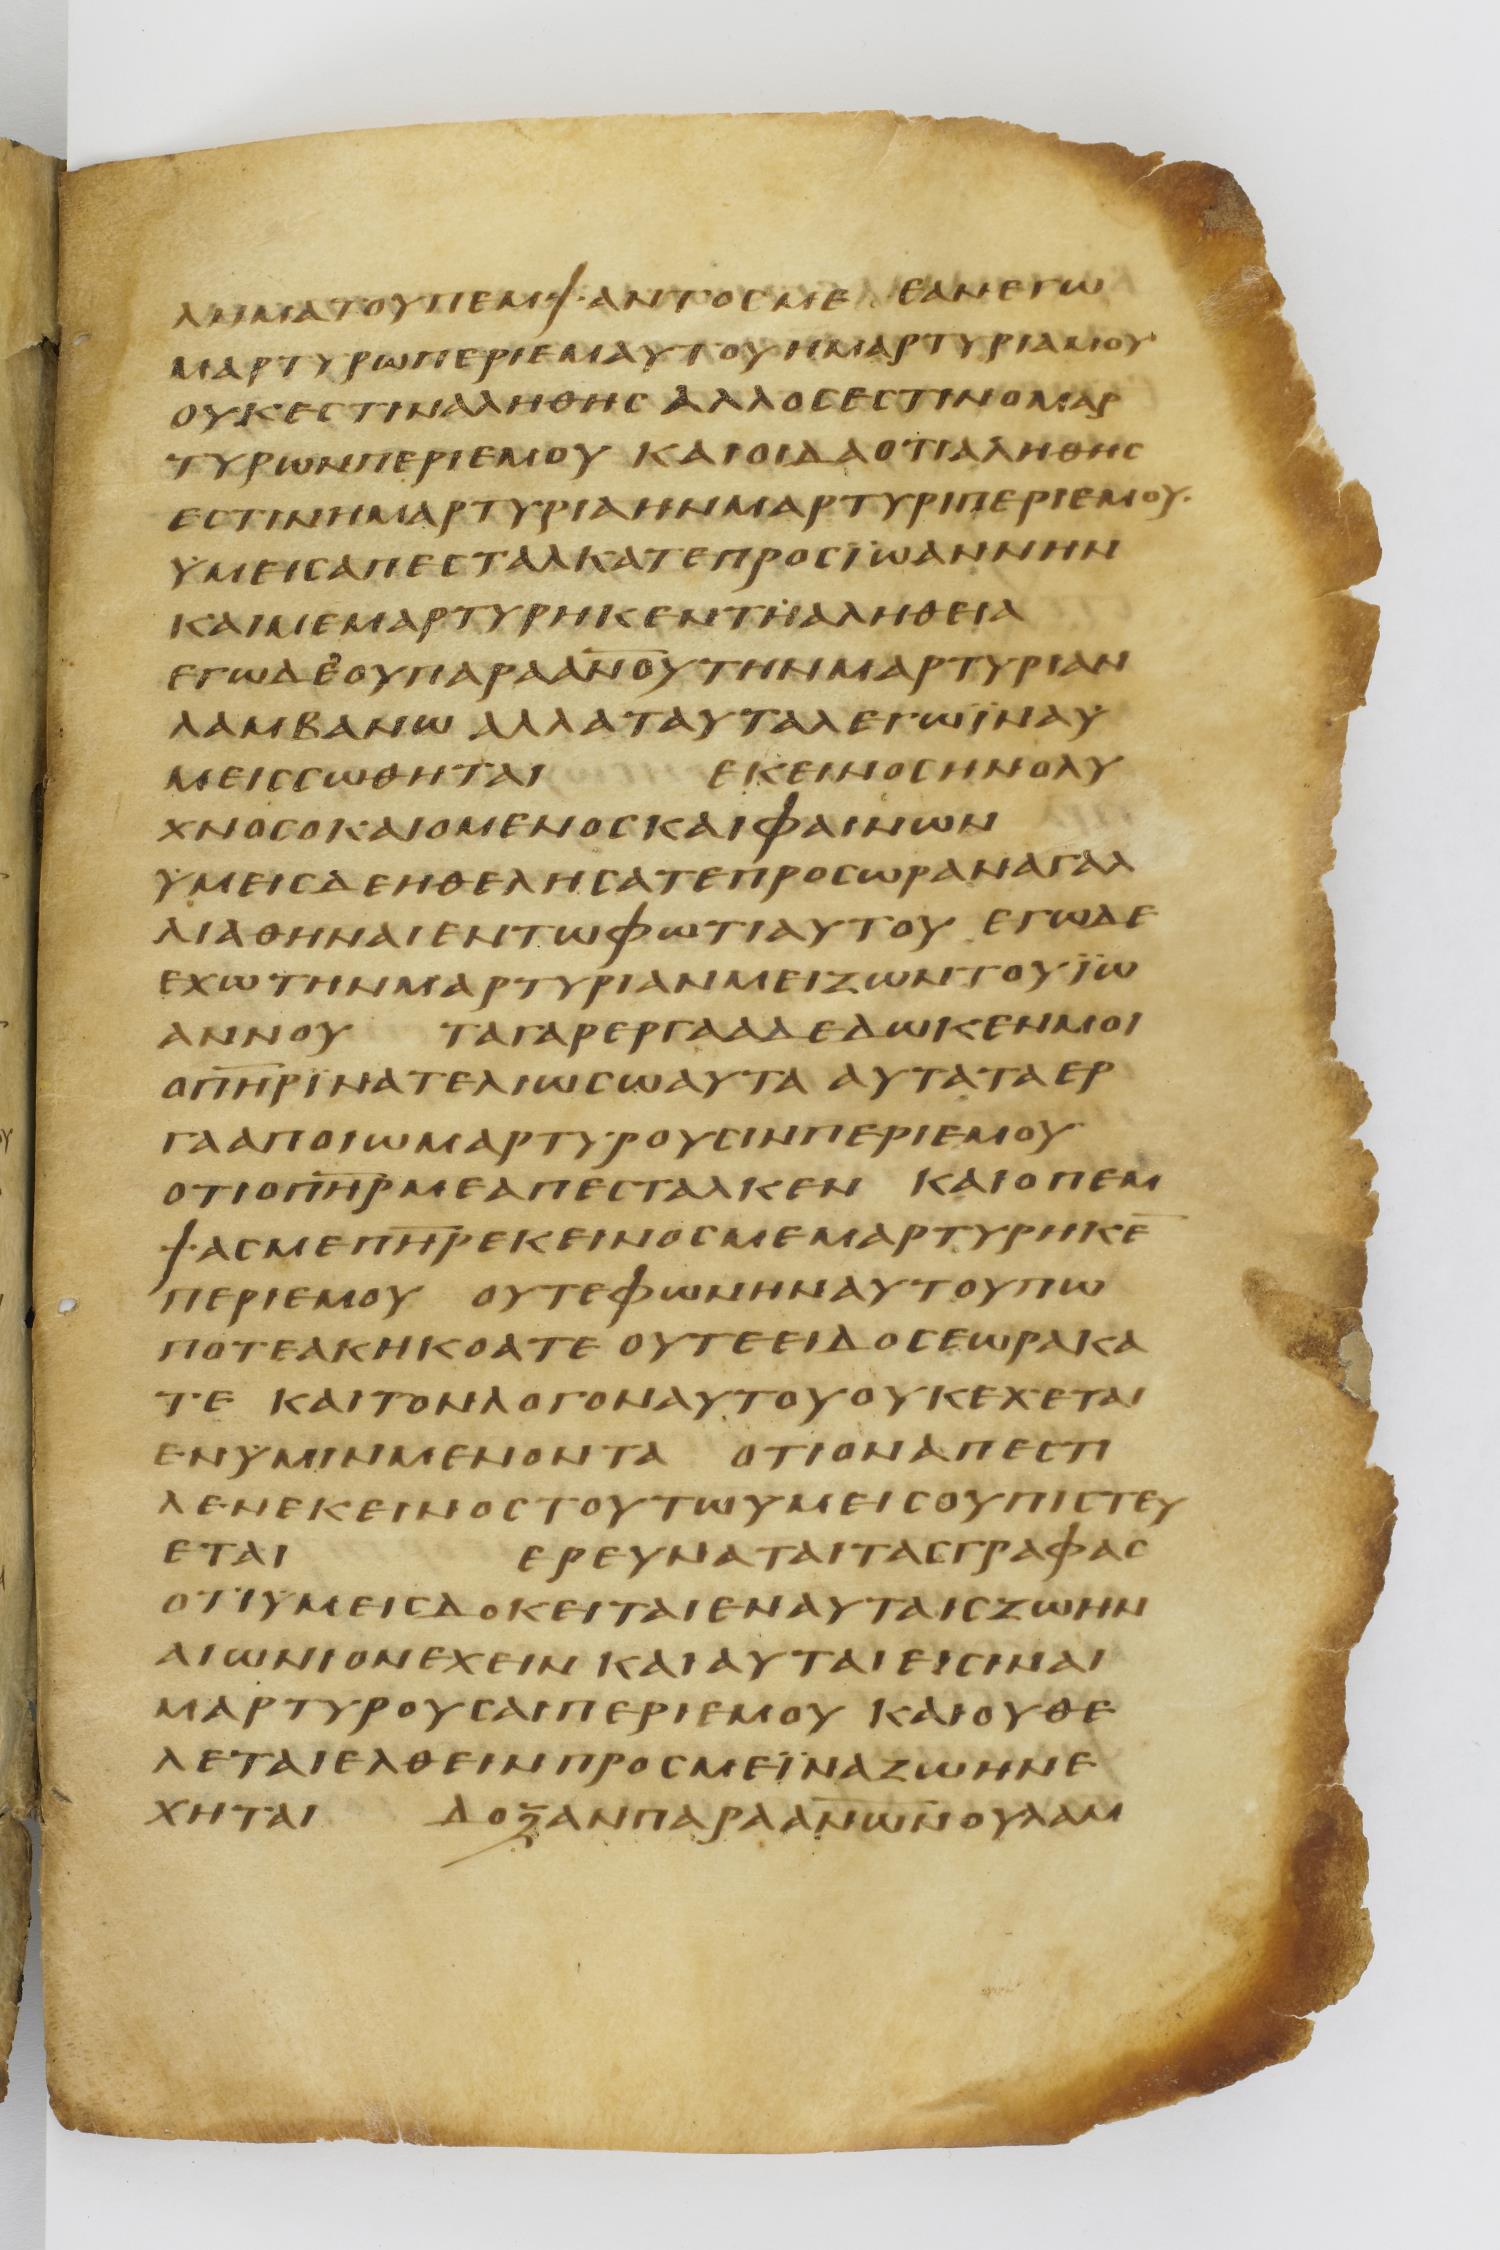 ΛΗΜΑΤΟΥΠΕΜΨΑΝΤΟϹΜΕ ΕΑΝΕΓΩ
ΜΑΡΤΥΡΩΠΕΡΙΕΜΑΥΤΟΥΗΜΑΡΤΥΡΙΑΜΟΥ
ΟΥΚΕϹΤΙΝΑΛΗΘΗϹ ΑΛΛΟϹΕϹΤΙΝΟΜΑΡ
ΤΥΡΩΝΠΕΡΙΕΜΟΥ ΚΑΙΟΙΔΑΟΤΙΑΛΗΘΗϹ
ΕϹΤΙΝΗΜΑΡΤΥΡΙΑΗΝΜΑΡΤΥΡΙΠΕΡΙΕΜΟΥ·
ΫΜΕΙϹΑΠΕϹΤΑΛΚΑΤΕΠΡΟϹΪΩΑΝΝΗΝ
ΚΑΙΜΕΜΑΡΤΥΡΗΚΕΝΤΗΑΛΗΘΕΙΑ
ΕΓΩΔΕΟΥΠΑΡΑΑΝ̅Ο̅Υ̅ΤΗΝΜΑΡΤΥΡΙΑΝ
ΛΑΜΒΑΝΩ ΑΛΛΑΤΑΥΤΑΛΕΓΩΪΝΑΫ
ΜΕΙϹϹΩΘΗΤΑΙ ΕΚΕΙΝΟϹΗΝΟΛΥ
ΧΝΟϹΟΚΑΙΟΜΕΝΟϹΚΑΙΦΑΙΝΩΝ
ΫΜΕΙϹΔΕΗΘΕΛΗϹΑΤΕΠΡΟϹΩΡΑΝΑΓΑΛ
ΛΙΑΘΗΝΑΙΕΝΤΩΦΩΤΙΑΥΤΟΥ ΕΓΩΔΕ
ΕΧΩΤΗΝΜΑΡΤΥΡΙΑΝΜΕΙΖΩΝΤΟΥΪΩ
ΑΝΝΟΥ ΤΑΓΑΡΕΡΓΑΑΔΕΔΩΚΕΝΜΟΙ
ΟΠ̅Η̅Ρ̅ΪΝΑΤΕΛΙΩϹΩΑΥΤΑ ΑΥΤΑΤΑΕΡ
ΓΑΑΠΟΙΩΜΑΡΤΥΡΟΥϹΙΝΠΕΡΙΕΜΟΥ
ΟΤΙΟΠ̅Η̅Ρ̅ΜΕΑΠΕϹΤΑΛΚΕΝ ΚΑΙΟΠΕΜ
ΨΑϹΜΕΠ̅Η̅Ρ̅ΕΚΕΙΝΟϹΜΕΜΑΡΤΥΡΗΚΕ̅
ΠΕΡΙΕΜΟΥ ΟΥΤΕΦΩΝΗΝΑΥΤΟΥΠΩ
ΠΟΤΕΑΚΗΚΟΑΤΕ ΟΥΤΕΕΙΔΟϹΕΩΡΑΚΑ
ΤΕ ΚΑΙΤΟΝΛΟΓΟΝΑΥΤΟΥΟΥΚΕΧΕΤΑΙ
ΕΝΫΜΙΝΜΕΝΟΝΤΑ ΟΤΙΟΝΑΠΕϹΤΙ
ΛΕΝΕΚΕΙΝΟϹΤΟΥΤΩΥΜΕΙϹΟΥΠΙϹΤΕΥ
ΕΤΑΙ ΕΡΕΥΝΑΤΑΙΤΑϹΓΡΑΦΑϹ
ΟΤΙΥΜΕΙϹΔΟΚΕΙΤΑΙΕΝΑΥΤΑΙϹΖΩΗΝ
ΑΙΩΝΙΟΝΕΧΕΙΝ ΚΑΙΑΥΤΑΙΕΙϹΙΝΑΙ
ΜΑΡΤΥΡΟΥϹΑΙΠΕΡΙΕΜΟΥ ΚΑΙΟΥΘΕ
ΛΕΤΑΙΕΛΘΕΙΝΠΡΟϹΜΕΪΝΑΖΩΗΝΕ
ΧΗΤΑΙ ΔΟΞΑΝΠΑΡΑΑΝ̅Ω̅Ν̅ΟΥΛΑΜ